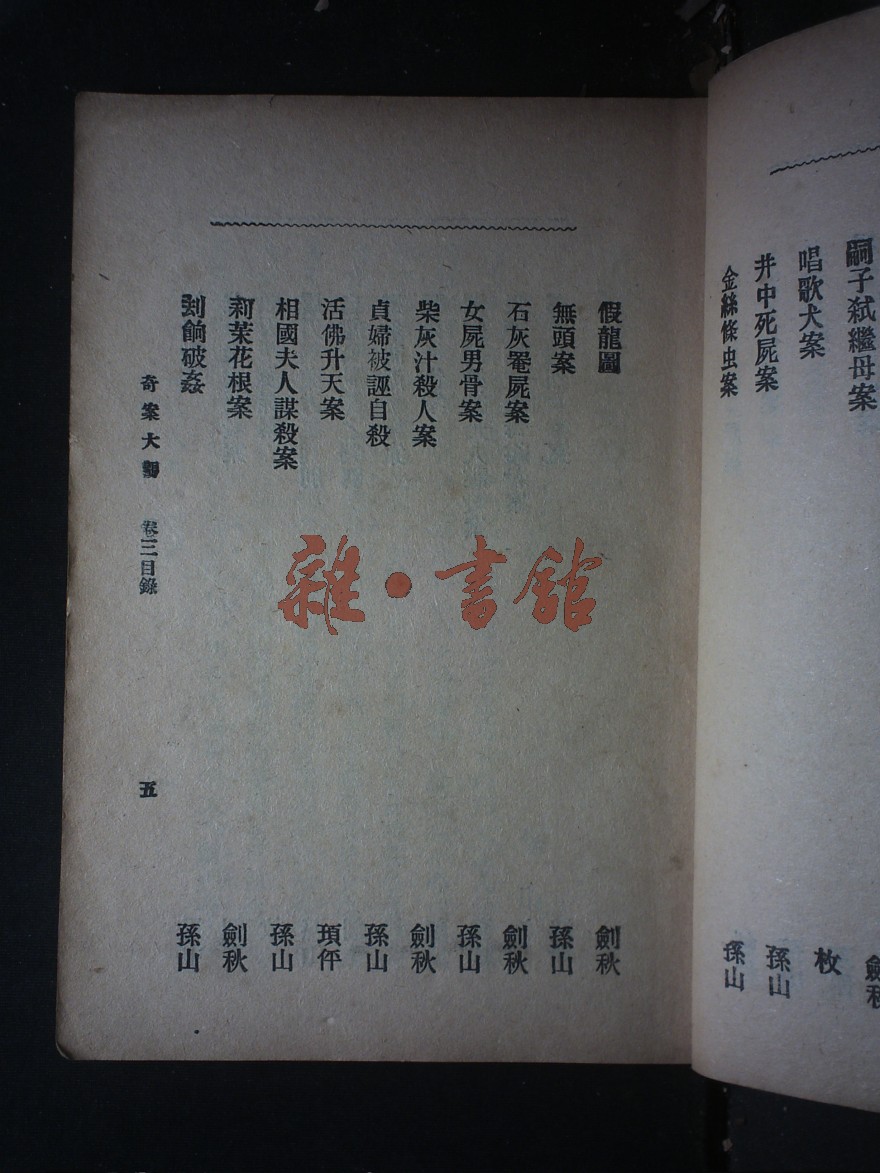 嗣子弑繼母案 劍秋
唱歌犬案 枚
井中死屍案 孫山
金絲條虫案 孫山
假龍圖 劍秋
無頭案 孫山
石灰罨屍案 劍秋
女屍男骨案 孫山
柴灰汁殺人案 劍秋
貞婦被誣自殺 孫山
活佛升天案 頊伻
相國夫人謀殺案 孫山
莉茉花根案 劍秋
刲餉破姦 孫山
奇案大觀 卷三目錄 五
雜·書館